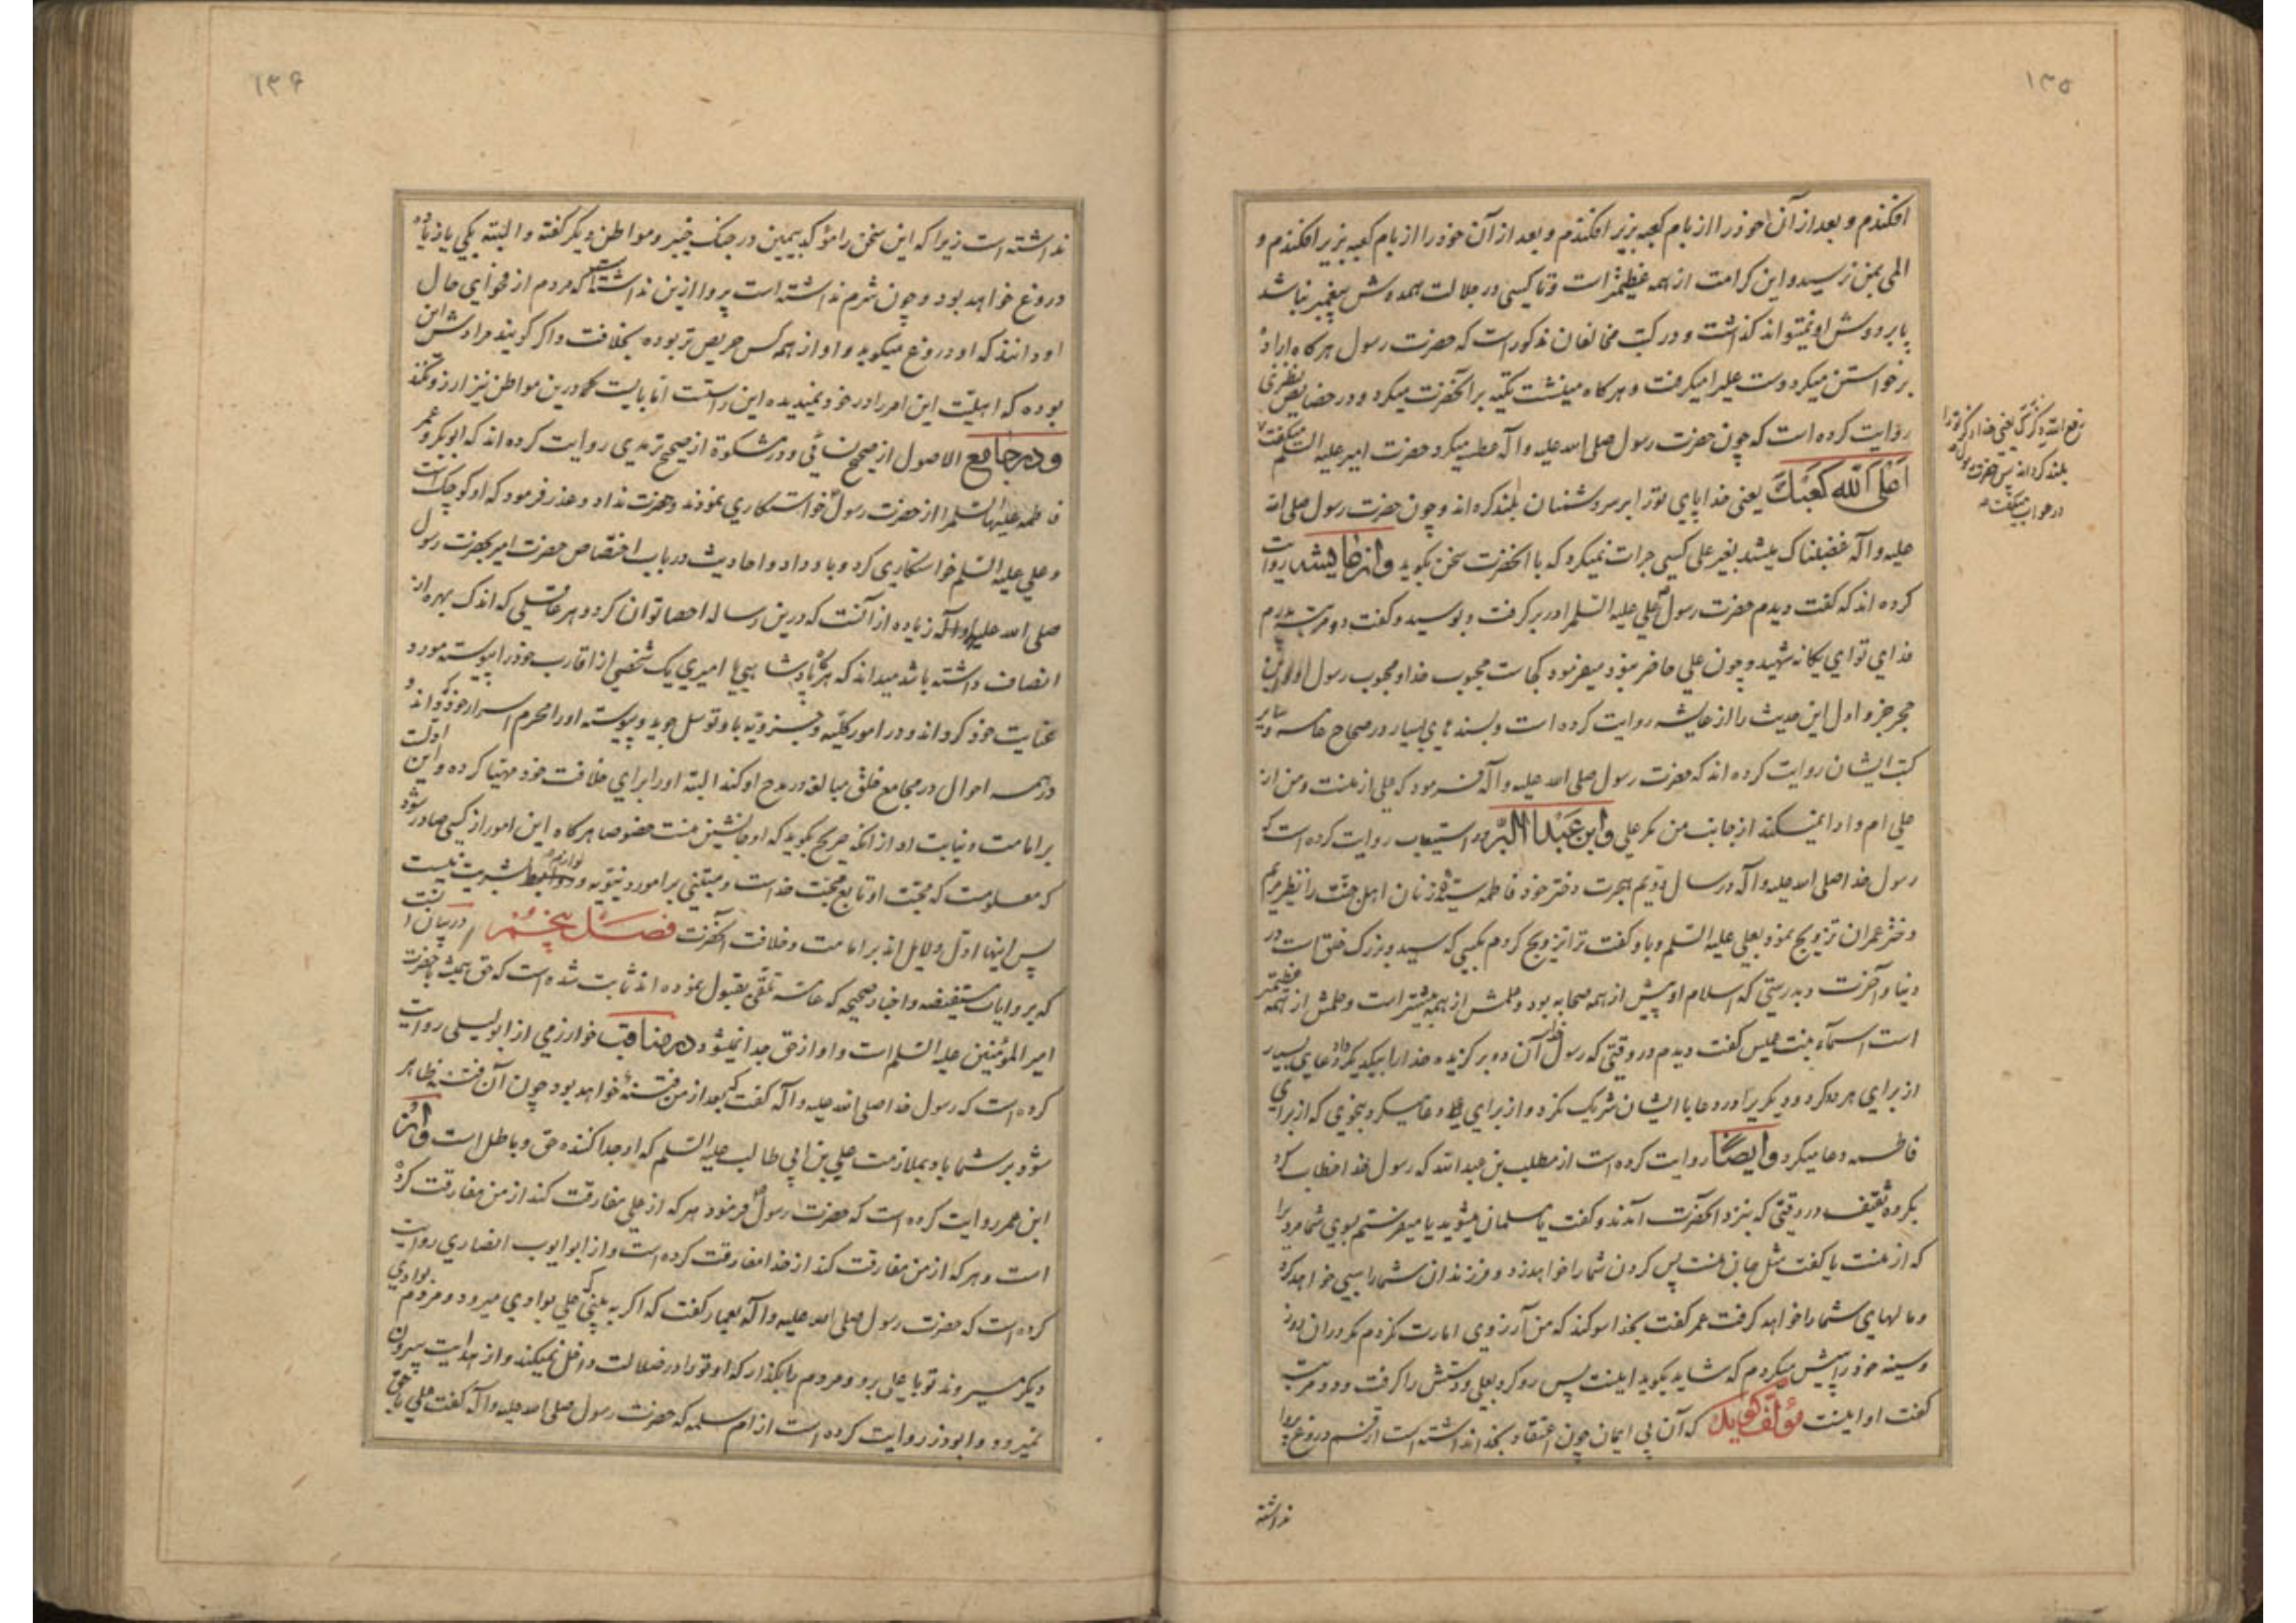 ۱۳۵
افکندم و بعد از آن خود را از بام کعبه بزیر افکندم و بعد از آن خود را از بام کعبه بزیر افکندم و
المی بمن نرسید و این کرامت از همه عظیمتر است و تا کسی در جلالت همدوش پیغمبر نباشد
پا بر دوش او نمیتواند گذاشت و در کتب مخالفان مذکور است که حضرت رسول هرگاه اراده
برخواستن میکرد دست علی را میکرفت و هرکاه مینشست تکیه بر آنحضرت میکرد و در خصایص نطنزی
روایت کرده است که چون حضرت رسول صلی الله علیه و آله عطسه میکرد حضرت امیر علیه السلم میکفت
اعلی الله کعبک یعنی خدا پای تو را بر سر دشمنان بلند کرداند و چون حضرت رسول صلی الله
علیه و آله غضبناک میشد بغیر علی کسی جرات نمیکرد که با آنحضرت سخن بکوید و از عایشه روایت
کرده اند که کفت دیدم حضرت رسول علی علیه السلم را در بر کرفت و بوسید و کفت دو مرتبه پدرم
فدای تو ای یکانه شهید و چون علی حاضر نبود میفرمود کجاست محبوب خدا و محبوب رسول او و ابن
حجر جزو اول این حدیث را از عایشه روایت کرده است و بسندهای بسیار در صحاح عامه و سایر
کتب ایشان روایت کرده اند که حضرت رسول صلی الله علیه و آله فرمود که علی از منست و من از
علی ام و ادا نمیکند از جانب من مکر علی و ابن عبد البر در استیعاب روایت کرده است که
رسول خدا صلی الله علیه و آله در سال دویم هجرت دختر خود فاطمه سیده زنان اهل جنت را نظیر مریم
دختر عمران تزویج نمود بعلی علیه السلم و باو کفت ترا تزویج کردم بکسی که سید و بزرک خلق است در
دنیا و آخرت و بدرستی که اسلام او پیش از همه صحابه بود و علمش از همه بیشتر است و حلمش از همه عظیمتر
است اسماء بنت عمیس کفت دیدم در وقتی که رسول خدا آن دو برکزیده خدا را بیکدیکر داد دعای بسیار
از برای هر دو کرد و دیکری را در دعا با ایشان شریک نکرد و از برای علی دعا میکرد بنحوی که از برای
فاطمه دعا میکرد و ایضا روایت کرده است از مطلب بن عبد الله که رسول خدا خطاب کرد
بکروه ثقیف در وقتی که بنزد آنحضرت آمدند و کفت یا مسلمان میشوید یا میفرستم بسوی شما مردی را
که از منست یا کفت مثل جان منست پس کردن شما را خواهد زد و فرزندان شما را سبی خواهد کرد
و مالهای شما را خواهد کرفت عمر کفت بخدا سوکند که من آرزوی امارت نکردم مکر در آن روز
و سینه خود را پیش میکردم که شاید بکوید اینست پس رو کرد بعلی و دستش را کرفت و دو مرتبه
کفت او اینست مؤلف کوید که آن بی ایمان چون اعتقاد بخدا نداشته است از قسم دروغ پروا
نداشته
یعنی خدا ذکر تو را
بلند کرداند پس حضرت رسول
در جواب میکفت
۱۳۶
نداشته است زیرا که این سخن را مؤکد بیمین در جنک خیبر و مواطن دیکر کفته و البته یکی یا زیاده
دروغ خواهد بود و چون شرم نداشته است پروا ازین نداشته است که مردم از فحوای حال
او دانند که او دروغ میکوید و او از همه کس حریص تر بوده بخلافت و اکر کویند مرادش این
بوده که اهلیت این امر را در خود نمیدیده این راستست اما بایست که درین مواطن نیز آرزو نکند
و در جامع الاصول از صحیح نسائی و در مشکوة از صحیح ترمذی روایت کرده اند که ابوبکر و عمر
فاطمه علیها السلم را از حضرت رسول خواستکاری نمودند و حضرت نداد و عذر فرمود که او کوچک است
و علی علیه السلم خواستکاری کرد و باو داد و احادیث در باب اختصاص حضرت امیر بحضرت رسول
صلی الله علیه و آله زیاده از آنست که درین رساله احصا توان کرد و هر عاقلی که اندک بهره از
انصاف داشته باشد میداند که هرکاه پادشاهی یا امیری یک شخصی از اقارب خود را پیوسته مورد
عنایت خود کرداند و در امور کلیه و جزویه باو توسل جوید و پیوسته او را محرم اسرار خود کرداند و
در همه احوال در مجامع خلق مبالغه در مدح او کند البته او را برای خلافت خود مهیا کرده و این اولست
بر امامت و نیابت او از آنکه صریح بکوید که او جانشین منست خصوصا هرکاه این امور از کسی صادر شود
که معلومست که محبت او تابع محبت خداست و مبتنی بر امور دنیویه و لوازم بشریت نیست
پس اینها ادل دلایل اند بر امامت و خلافت آنحضرت فصل پنجم در بیان آنست
که بروایات مستفیضه و اخبار صحیحه که عامه تلقی بقبول نموده اند ثابت شده است که حق همیشه با حضرت
امیر المؤمنین علیه السلم است و او از حق جدا نمیشود در مناقب خوارزمی از ابو لیلی روایت
کرده است که رسول خدا صلی الله علیه و آله کفت که بعد از من فتنه خواهد بود چون آن فتنه ظاهر
شود بر شما باد بملازمت علی بن ابی طالب علیه السلم که او جدا کننده حق و باطل است و از
ابن عمر روایت کرده است که حضرت رسول فرمود هر که از علی مفارقت کند از من مفارقت کرده
است و هر که از من مفارقت کند از خدا مفارقت کرده است و از ابو ایوب انصاری روایت
کرده است که حضرت رسول صلی الله علیه و آله بعمار کفت که اکر به بینی که علی بوادی میرود و مردم بوادی
دیکر میروند تو با علی برو و مردم را بکذار که او تو را در ضلالت داخل نمیکند و از هدایت بیرون
نمیبرد و ابوذر روایت کرده است از ام سلمه که حضرت رسول صلی الله علیه و آله کفت علی با حق